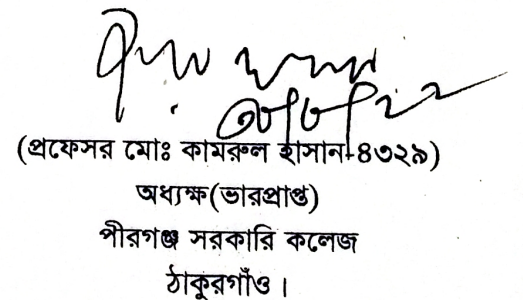 (প্রফেসর মোঃ কামরুল হাসান-৪৩২৯)
অধ্যক্ষ(ভারপ্রাপ্ত)
পীরগঞ্জ সরকারি কলেজ
ঠাকুরগাঁও।